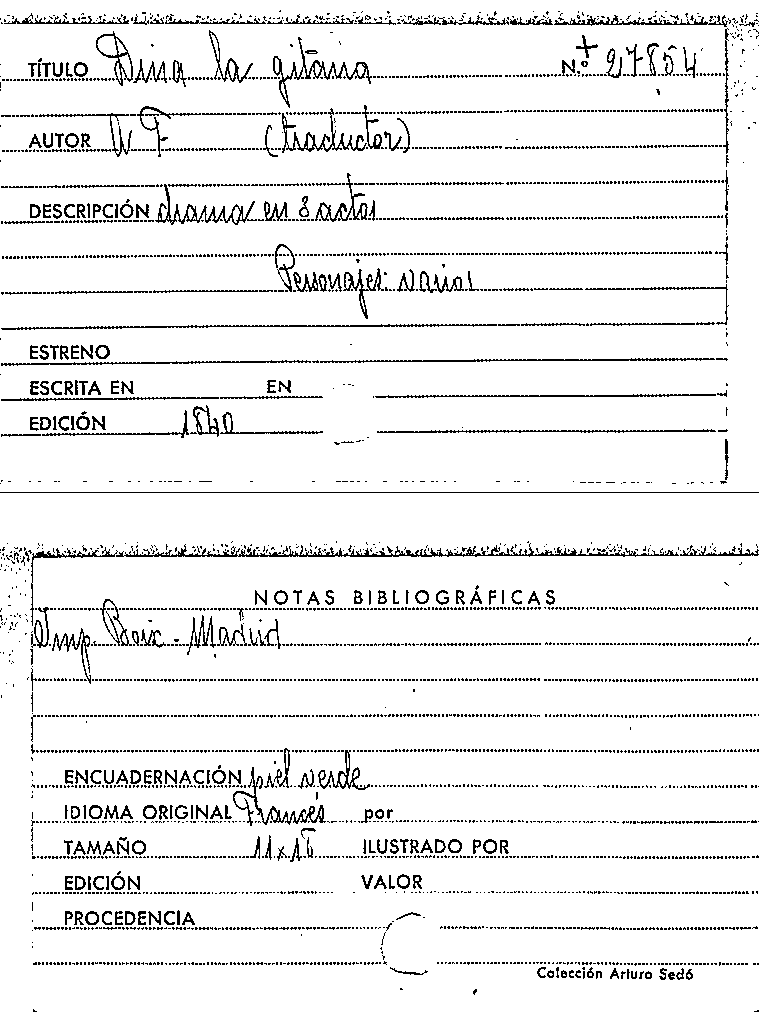 TÍTULO Dina la gitana N.º + 27854
AUTOR A F (traductor)
DESCRIPCIÓN drama en 3 actos
Personajes: varios
ESTRENO
ESCRITA EN EN
EDICIÓN 1840
NOTAS BIBLIOGRÁFICAS
Imp. Boix - Madrid
ENCUADERNACIÓN piel verde
IDIOMA ORIGINAL Francés por
TAMAÑO ILUSTRADO POR
EDICIÓN VALOR
PROCEDENCIA
Colección Arturo Sedó